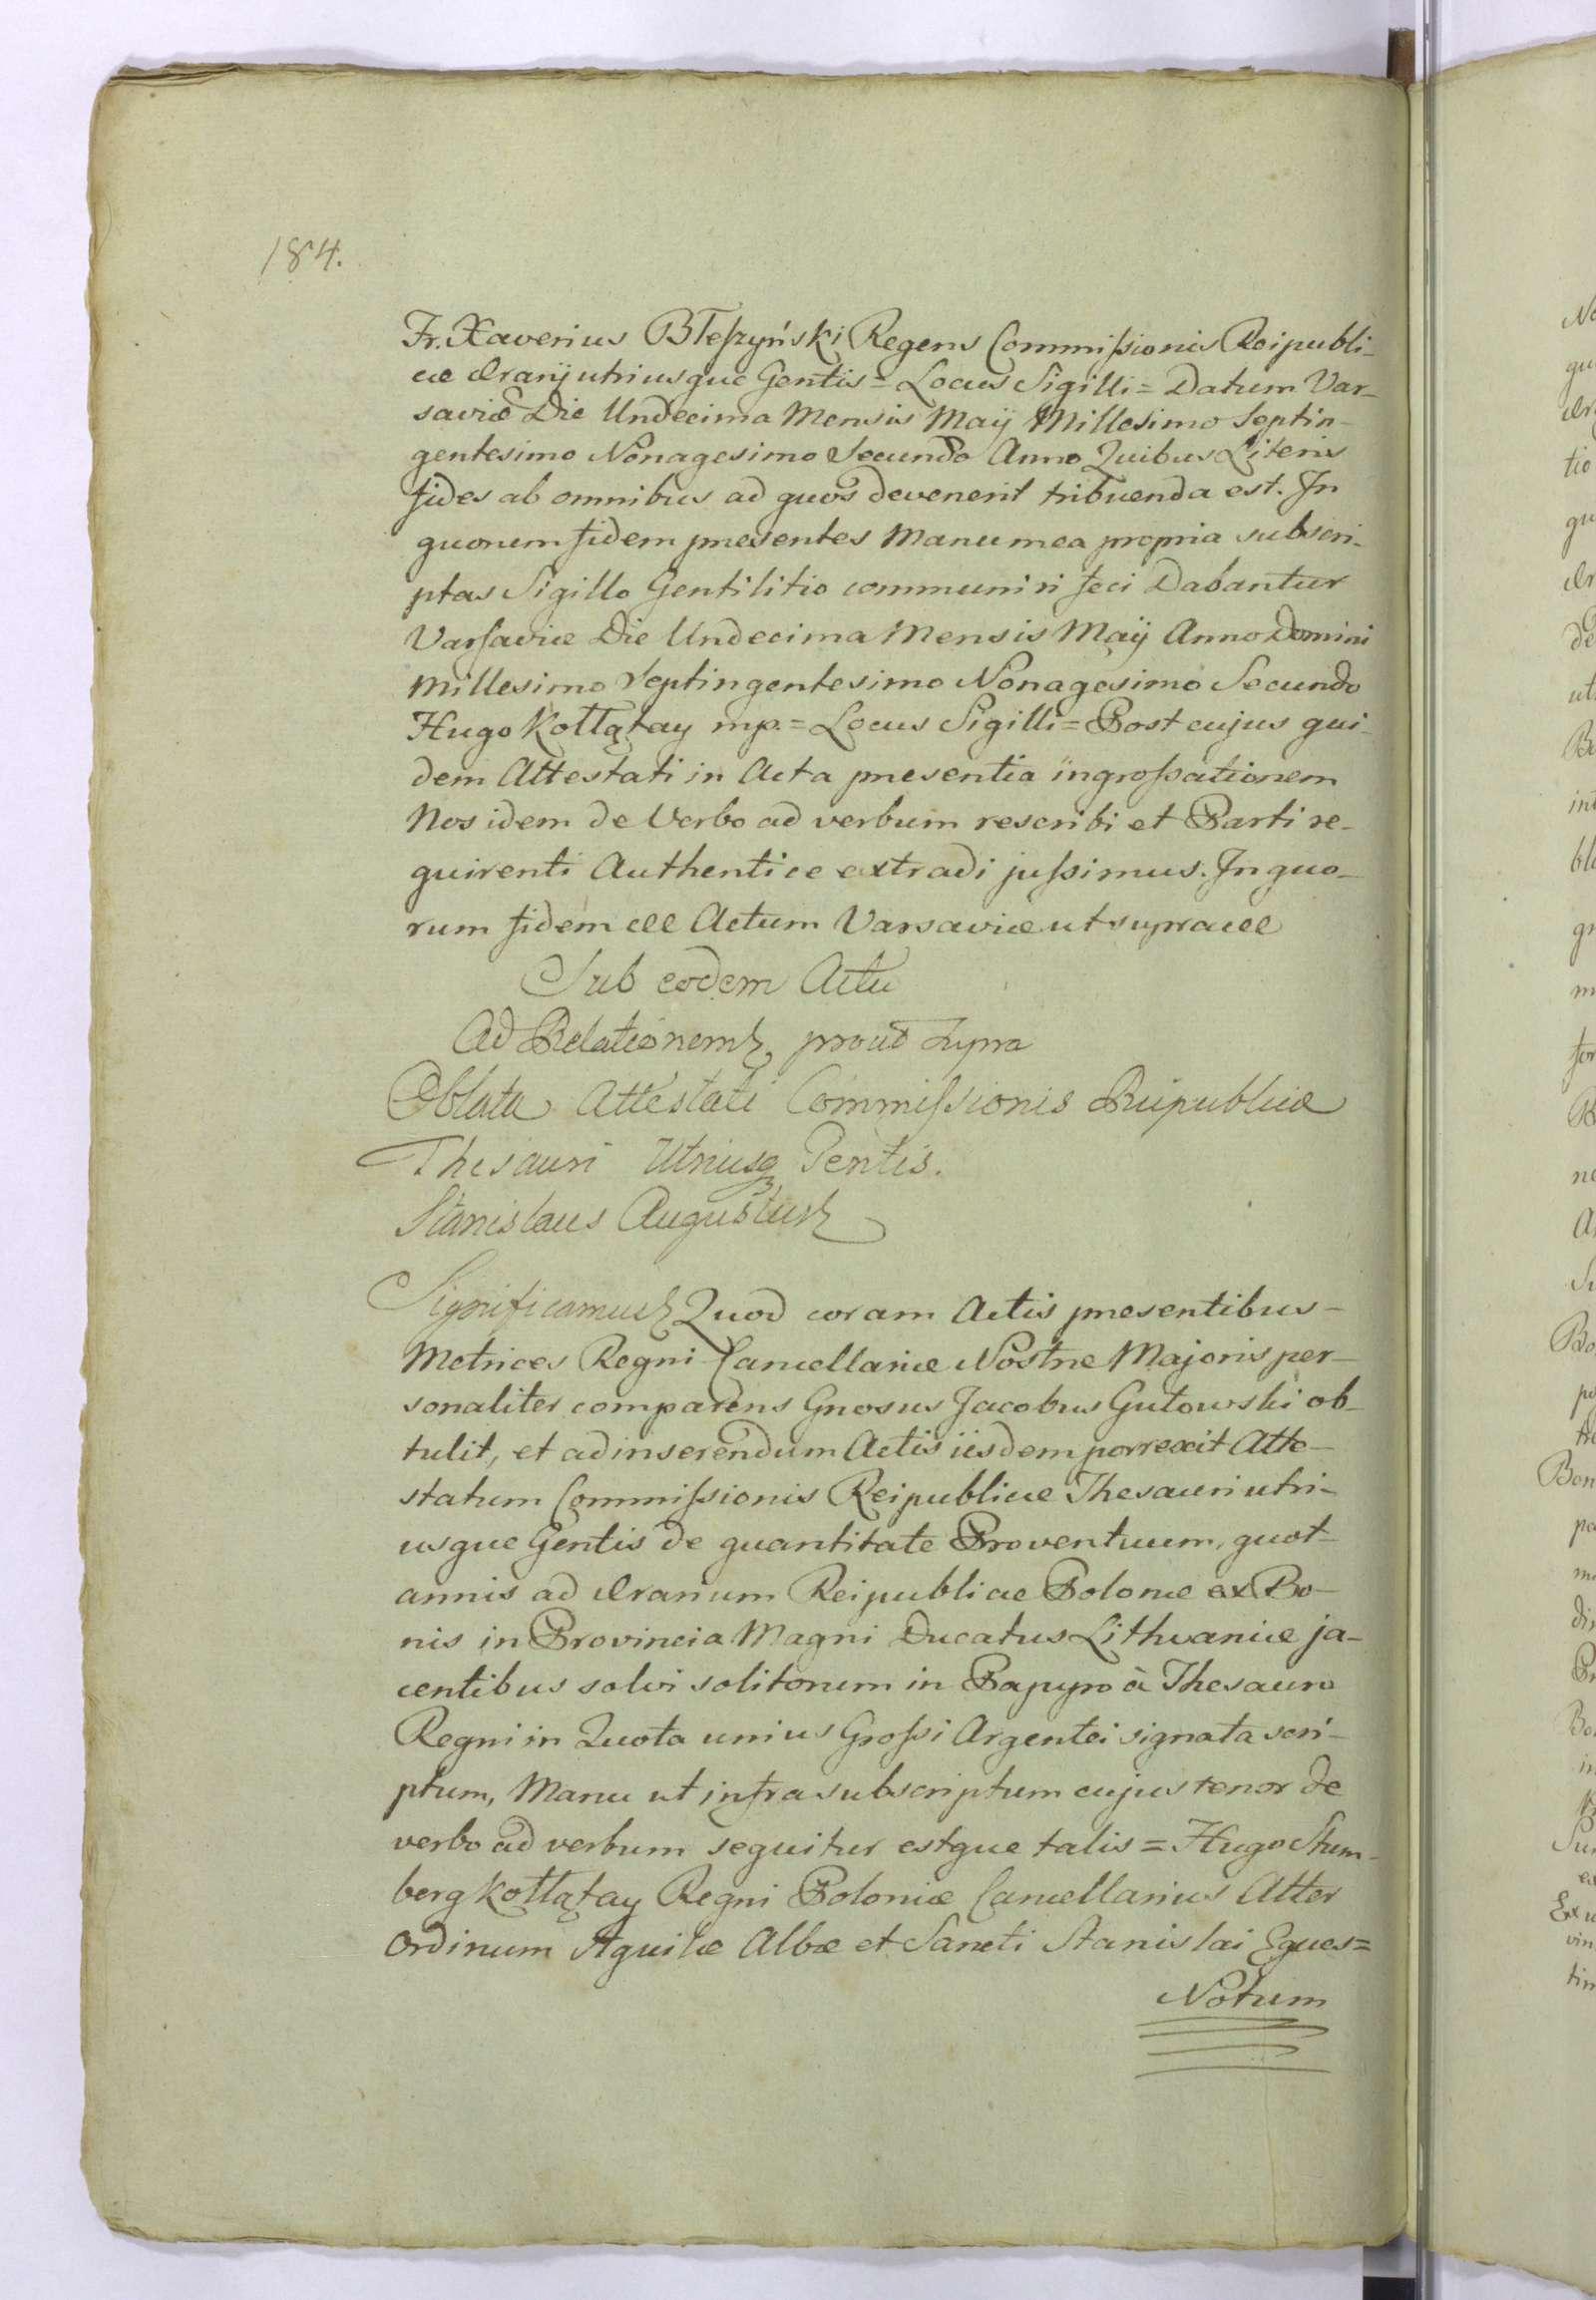 184.
Fr. Xaverius Błeszyński Regens Commissionis Reipubli-
cæ Ærarij utriusque Gentis = Locus Sigilli = Datum Var-
saviæ Die Undecima Mensis Maij Millesimo Septin-
gentesimo Nonagesimo Secundo Anno Quibus Literis
fides ab omnibus ad quos devenerit tribuenda est. In
quorum fidem præsentes Manu mea propria subscri-
ptas Sigillo Gentilitio communiri feci Dabantur
Varsaviæ Die Undecima Mensis Maij Anno Domini
Millesimo Septingentesimo Nonagesimo Secundo
Hugo Kołłątay mp. = Locus Sigilli = Post cujus qui-
dem Attestati in Acta præsentia ingrossationem
Nos idem de Verbo ad verbum rescribi et Parti re-
quirenti Authentice extradi jussimus. In quo-
rum fidem &c Actum Varsaviæ ut supra &c
Sub eodem Actu
Ad Relationem prout supra
Oblata Attestati Commissionis Reipublicæ
Thesauri Utriusq Gentis.
Stanislaus Augustus
Significamus Quod coram Actis præsentibus
Metrices Regni Cancellariæ Nostræ Majoris per-
sonaliter comparens Gnosus Jacobus Gutowski ob-
tulit, et ad inserendum Actis iisdem porrexit Atte-
statum Commissionis Reipublicæ Thesauri utri-
usque Gentis de quantitate Proventuum, quot-
annis ad Ærarium Reipublicae Polonæ ex Bo-
nis in Provincia Magni Ducatus Lithvaniæ ja-
centibus solvi solitorum in Papyro à Thesauro
Regni in Quota unius Grossi Argentei signata scri-
ptum, Manu ut infra subscriptum cujus tenor de
verbo ad verbum sequitur estque talis = Hugo Stum-
berg Kołłątay Regni Poloniæ Cancellarius Alter
Ordinum Aquilæ Albæ et Sancti Stanislai Eques =
Notum